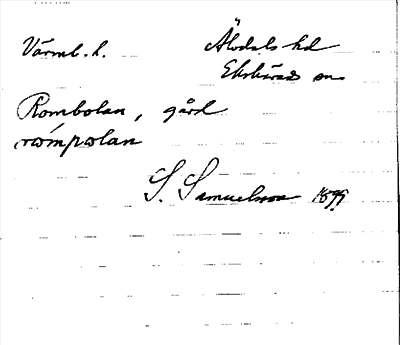 Värml. l. Älvdals hd
Ekshärads sn
Rombolan, gård
römpolan
S. Samuelsson 1899